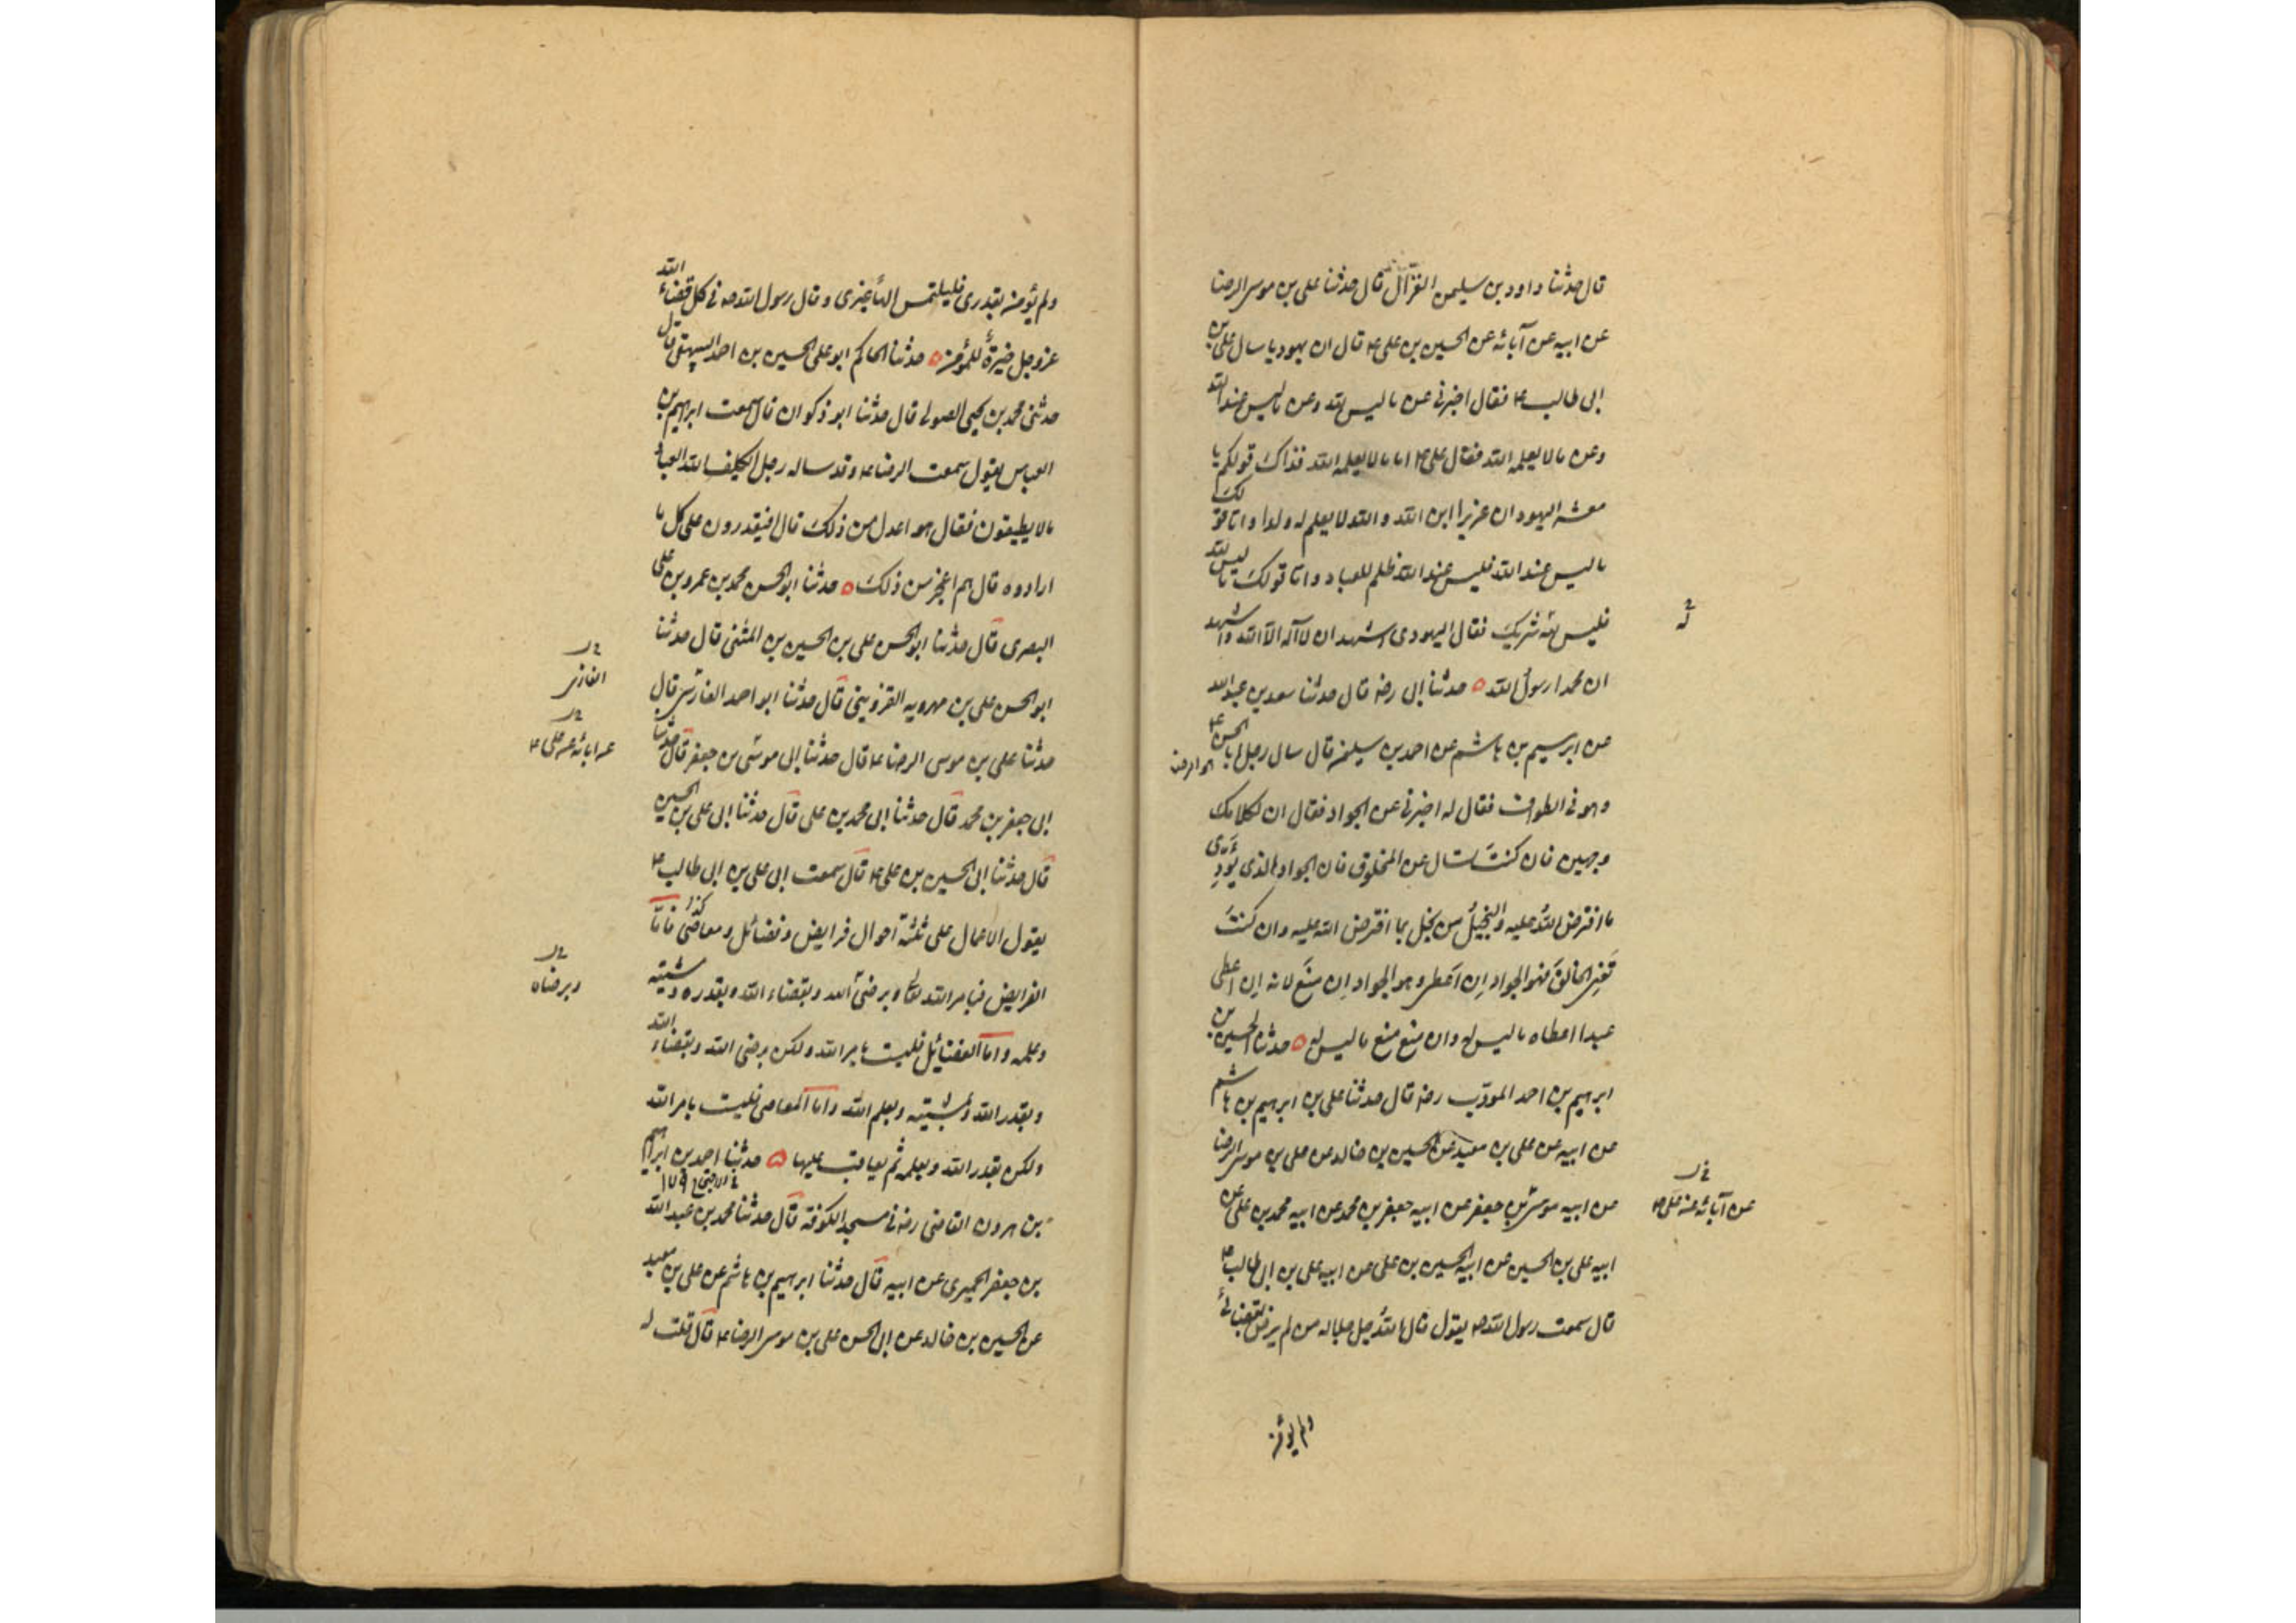 قال حدثنا داود بن سليمن الفزال قال حدثنا على بن موسى الرضا
عن ابيه عن آبائه عن الحسين بن على ع قال ان يهوديا سال على بن
ابى طالب ع فقال اخبرنى عن ما ليس لله وعن ما ليس عند الله
وعن ما لا يعلمه الله فقال على ع اما ما لا يعلمه الله فذاك قولكم يا
معشر اليهود ان عزيرا ابن الله والله لا يعلم له ولدا واما قولك
ما ليس عند الله فليس عند الله ظلم للعباد واما قولك ما ليس لله
فليس لله شريك فقال اليهودى اشهد ان لا اله الا الله واشهد
له
ان محمدا رسول الله حدثنا ابى رضه قال حدثنا سعد بن عبد الله
عن ابرهيم بن هاشم عن احمد بن سليمن قال سال رجل ابا الحسن ع
الرضا
وهو فى الطواف فقال له اخبرنى عن الجواد فقال ان لكلامك
وجهين فان كنت تسال عن المخلوق فان الجواد الذى يؤدى
ما افترض الله عليه والبخيل من بخل بما افترض الله عليه وان كنت
تعنى الخالق فهو الجواد ان اعطى وهو الجواد ان منع لانه ان اعطى
عبدا اعطاه ما ليس له وان منع منع ما ليس له حدثنا الحسين بن
ابرهيم بن احمد المودب رضه قال حدثنا على بن ابرهيم بن هاشم
عن ابيه عن على بن معبد عن الحسين بن خالد عن على بن موسى الرضا
عن ابيه موسى بن جعفر عن ابيه جعفر بن محمد عن ابيه محمد بن على عن
عن آبائه عن على ع
ابيه على بن الحسين عن ابيه الحسين بن على عن ابيه على بن ابى طالب ع
قال سمعت رسول الله صه يقول قال الله جل جلاله من لم يرض بقضائى
ولم يؤمن
ولم يؤمن بقدرى فليلتمس الها غيرى وقال رسول الله صه فى كل قضاء الله
عز وجل خيرة للمؤمن حدثنا الحاكم ابو على الحسين بن احمد البيهقى قال
حدثنى محمد بن يحيى الصولى قال حدثنا ابو ذكوان قال سمعت ابرهيم بن
العباس يقول سمعت الرضا ع وقد ساله رجل ايكلف الله العباد
ما لا يطيقون فقال هو اعدل من ذلك قال افيقدرون على كل ما
ارادوه قال هم اعجز من ذلك حدثنا ابو الحسن محمد بن عمرو بن على
البصرى قال حدثنا ابو الحسن على بن الحسين بن المثنى قال حدثنا
ابو الحسن على بن مهرويه القزوينى قال حدثنا ابو احمد الغازى قال
الغازى
حدثنا على بن موسى الرضا ع قال حدثنا ابى موسى بن جعفر قال حدثنا
عن ابائه عن على ع
ابى جعفر بن محمد قال حدثنا ابى محمد بن على قال حدثنا ابى على بن الحسين
قال حدثنا ابى الحسين بن على ع قال سمعت ابى على بن ابى طالب ع
يقول الاعمال على ثلثة احوال فرايض وفضائل ومعاصى فاما
كذا
الفرايض فبامر الله تعالى وبرضى الله وبقضاء الله وبقدره ومشيته
وبرضاه
وعلمه واما الفضائل فليست بامر الله ولكن برضى الله وبقضاء الله
وبقدر الله وبمشيته وبعلم الله واما المعاصى فليست بامر الله
ولكن بقدر الله وبعلمه ثم يعاقب عليها حدثنا احمد بن ابرهيم
بن هرون القاضى رضه فى مسجد الكوفة قال حدثنا محمد بن عبد الله
بن جعفر الحميرى عن ابيه قال حدثنا ابرهيم بن هاشم عن على بن معبد
عن الحسين بن خالد عن ابى الحسن على بن موسى الرضا ع قال قلت له